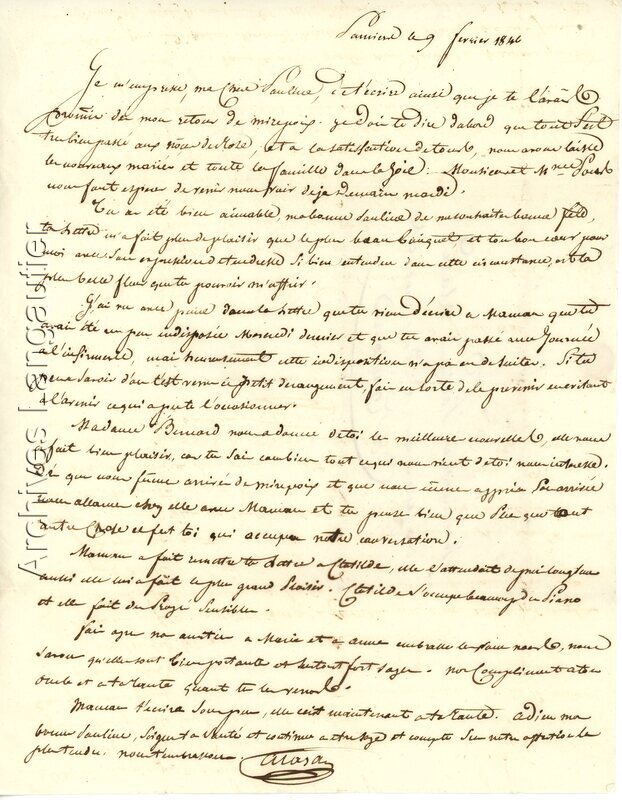 Pamiers le 9 fevrier 1846
Je m'empresse, ma Chere Pauline, de t'écrire ainsi que je te l'avais
promis de mon retour de mirepoix. je dois te dire dabord que tout s'est
tres bien passé aux noces de Rose, et a la satisfaction de tous, nous avons laissé
les nouveaux mariés et toute la famille dans la joie. Monsieur et Mme
nous font esperer de venir nous voir deja demain mardi.
Tu as été bien aimable, ma bonne Pauline de me souhaiter bonne fête,
ta lettre m'a fait plus de plaisir que le plus beau bouquet, et ton bon cœur pour
moi avec son expression de tendresse si bien entendue dans cette circonstance, est la
plus belle fleur que tu pouvois m'offrir.
J'ai vu avec peine dans la lettre que tu viens d'écrire a Maman que tu
avais été un peu indisposée Mercredi dernier et que tu avais passé une Journée
a l'infirmerie, mais heureusement cette indisposition n'a pas eu de suites. Si tu
peux savoir d'ou t'est venu ce petit derangement, fais en sorte de le prevenir en evitant
a l'avenir ce qui a pu te l'occasionner.
Madame Bernard nous a donné de toi les meilleures nouvelles, elle nous
a fait bien plaisir, car tu sais combien tout ce qui nous vient de toi nous interesse.
Dès que nous fumes arrivés de mirepoix et que nous eumes appris son arrivée
nous allames chez elle avec Maman et tu penses bien que plus que tout
autre chose ce fut toi qui occupa notre conversation.
Maman a fait remettre ta lettre a Clotilde, elle s'attendait depuis longtems
aussi elle lui a fait le plus grand Plaisir. Clotilde s'occupe beaucoup du Piano
et elle fait des Progrès sensibles.
Fais agréer nos amitiés a Maria et a anna embrasse les pour nous, nous
savons qu'elles sont bien portantes et surtout fort sages. nos Compliments a ton
oncle et a ta tante quant tu les verras.
Maman t'écrira sous peu, elle écrit maintenant a ta tante. adieu ma
bonne Pauline, soigne ta santé et continue a etre sage et compte sur notre affection la
plus tendre. nous t'embrassons.
Archives Langautier